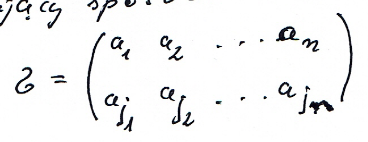 jący spo
a₁ a₂ ... aₙ
2 = ( )
a_{j₁} a_{j₂} ... a_{jₙ}